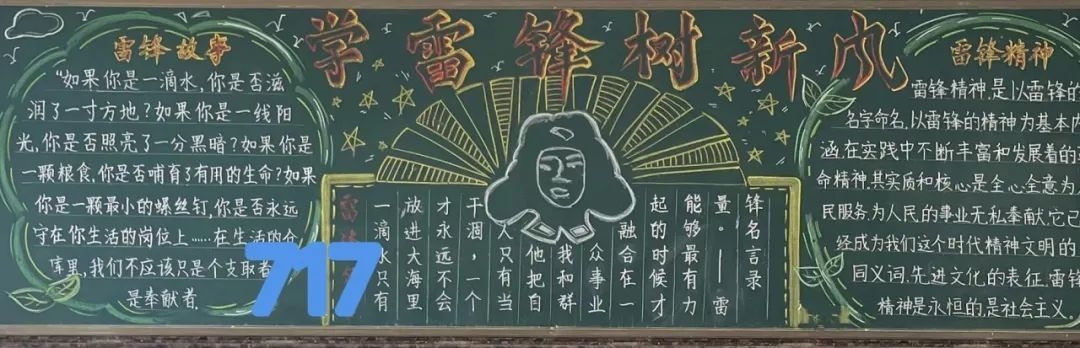 学雷锋树新风
雷锋故事
“如果你是一滴水,你是否滋
润了一寸方地?如果你是一线阳
光,你是否照亮了一分黑暗?如果你是
一颗粮食,你是否哺育了有用的生命?如果
你是一颗最小的螺丝钉,你是否永远
守在你生活的岗位上……在生活的仓
库里,我们不应该只是个支取者
是奉献者.
717
雷
一滴水只有
放进大海里
才永远不会
干涸,一个
人只有当
他把自
我和群
众事业
融合在一
起的时候才
能够最有力
量。——雷
锋名言录
雷锋精神
雷锋精神,是以雷锋的
名字命名,以雷锋的精神为基本内
涵在实践中不断丰富和发展着的
命精神,其实质和核心是全心全意为
民服务,为人民的事业无私奉献,它已
经成为我们这个时代精神文明的
同义词,先进文化的表征,雷锋
精神是永恒的,是社会主义.